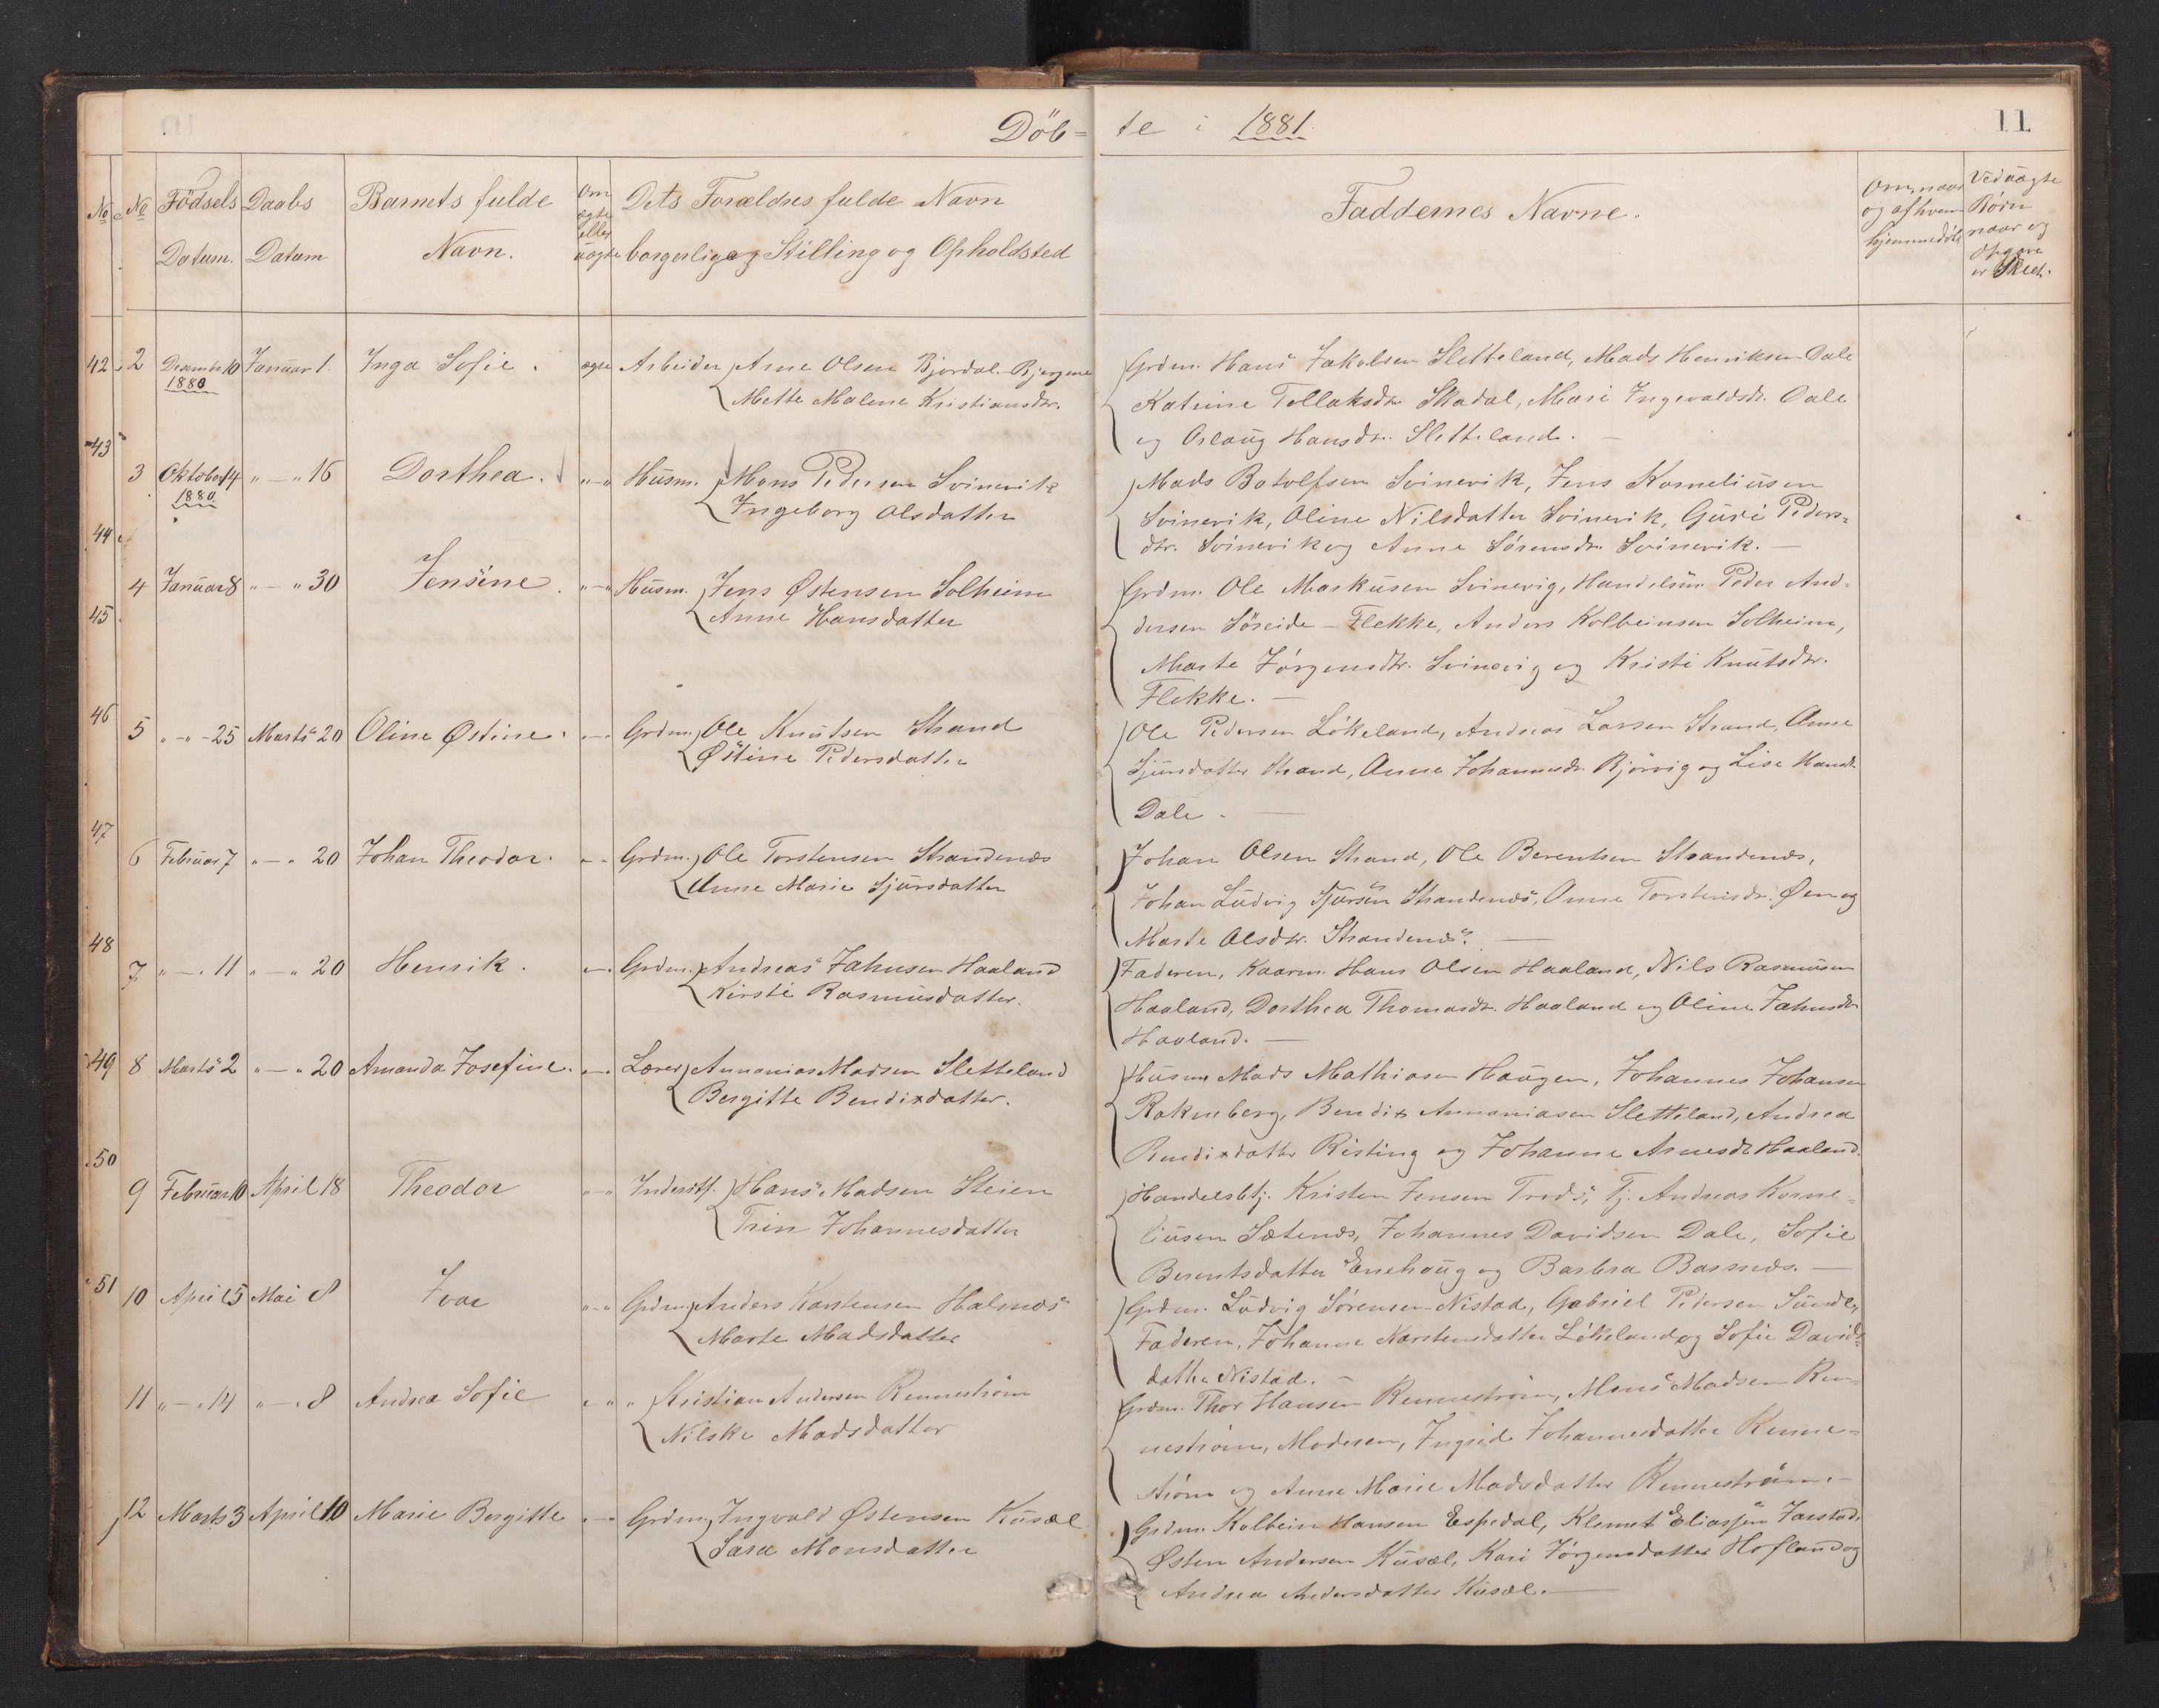 Döb- te i 1881.
11
No
No Födsels Datum. Daabs Datum Barnets fulde Navn. Om ægte eller uægte Dets Forældres fulde Navn borgerlige Stilling og Opholdsted
Faddernes Navne.
Om, naar og af hvem hjemmedøbt
Ved uægte Børn naar og Opgave er Skeet.
42 2 Decembr 10 1880 Januar 1. Inga Sofie. ægte Arbeider Arne Olsen Bjordal. Bjergene
Mette Malene Kristiansdr.
Grdm. Hans Jakobsen Sletteland, Mads Henriksen Dale
Katrine Tollaksdr. Skadal, Mari Ingevaldsdr. Dale
og Oslaug Hansdr. Sletteland. —
43
3 Oktober 14 1880 " — " 16 Dorthea. "—" Husm. Mons Pedersen Svinevik
Ingeborg Olsdatter
Mads Botolfsen Svinevik, Jens Korneliusen
Svinevik, Oline Nilsdatter Svinevik, Guri Peders-
dtr. Svinevik og Anne Sörensdr. Svinevik. —
44
4 Januar 8 " — " 30 Jensine. "—" Husm. Jens Østensen Solheim
Anne Hansdatter
Grdm. Ole Markusen Svinevig, Handelsm. Peder And-
dersen Söreide - Flekke, Anders Kolbeinsen Solheim,
Marte Jörgensdtr. Svinevig og Kristi Knutsdtr.
Flekke. —
45
46
5 " — " 25 Marts 20 Oline Østine. "—" Grdm. Ole Knutsen Strand
Østine Pedersdatter
Ole Pedersen Lökeland, Andreas Larsen Strand, Anne
Sjursdatter Strand, Anne Johannesdr. Björvig og Lise Hansdr.
Dale. —
47
6 Februar 7 " — " 20 Johan Theodor. "—" Grdm. Ole Torstensen Strandenæs
Anne Marie Sjursdatter
Johan Olsen Strand, Ole Berentsen Strandenæs,
Johan Ludvig Sjursen Strandenæs, Anne Torstensdr. Øen og
Marte Olsdtr. Strandenæs. —
48
7 " — " 11 " — " 20 Henrik. "—" Grdm. Andreas Jahnsen Haaland
Kirsti Rasmusdatter.
Faderen, Kaarm. Hans Olsen Haaland, Nils Rasmusen
Haaland, Dorthea Thomasdr. Haaland og Oline Jahnsdr.
Haaland. —
49 8 Marts 2 " — " 20 Amanda Josefine. "—" Lærer Annanias Madsen Sletteland
Bergitte Bendixdatter.
Husm. Mads Mathiasen Haugen, Johannes Johansen
Rakneberg, Bendix Annaniasen Sletteland, Andrea
Bendixdatter Risting og Johanne Arnesdr. Haaland.
50
9 Februar 10 April 18 Theodor "—" Inderstf. Hans Madsen Steien
Trin Johannesdatter
Handelsbtj. Kristen Jensen Trods, Tj. Andreas Korne-
liusen Sætenæs, Johannes Davidsen Dale, Sofie
Berentsdatter Enehaug og Barbra Barsnæs. —
51 10 April 5 Mai 8 Ivar "—" Grdm. Anders Karstensen Halnæs
Marte Madsdatter
Grdm. Ludvig Sörensen Nistad, Gabriel Pedersen Sunde,
Faderen, Johanne Karstensdatter Lökeland og Sofie Davids-
datter Nistad. —
11 " — " 14 " — " 8 Andrea Sofie " " " Kristian Andersen Renneström
Nilske Madsdatter
Grdm. Thor Hansen Renneström, Mons Madsen Ren-
neström, Moderen, Ingrid Johannesdatter Renne-
ström og Anne Marie Madsdatter Renneström. —
12 Marts 3 April 10 Marie Bergitte "—" Grdm. Ingvald Østensen Kusæl
Sara Monsdatter
Grdm. Kolbein Hansen Espedal, Klemet Eliassen Jarstad,
Østen Andersen Kusæl, Kari Jörgensdatter Hofland og
Andrea Andersdatter Kusæl. —